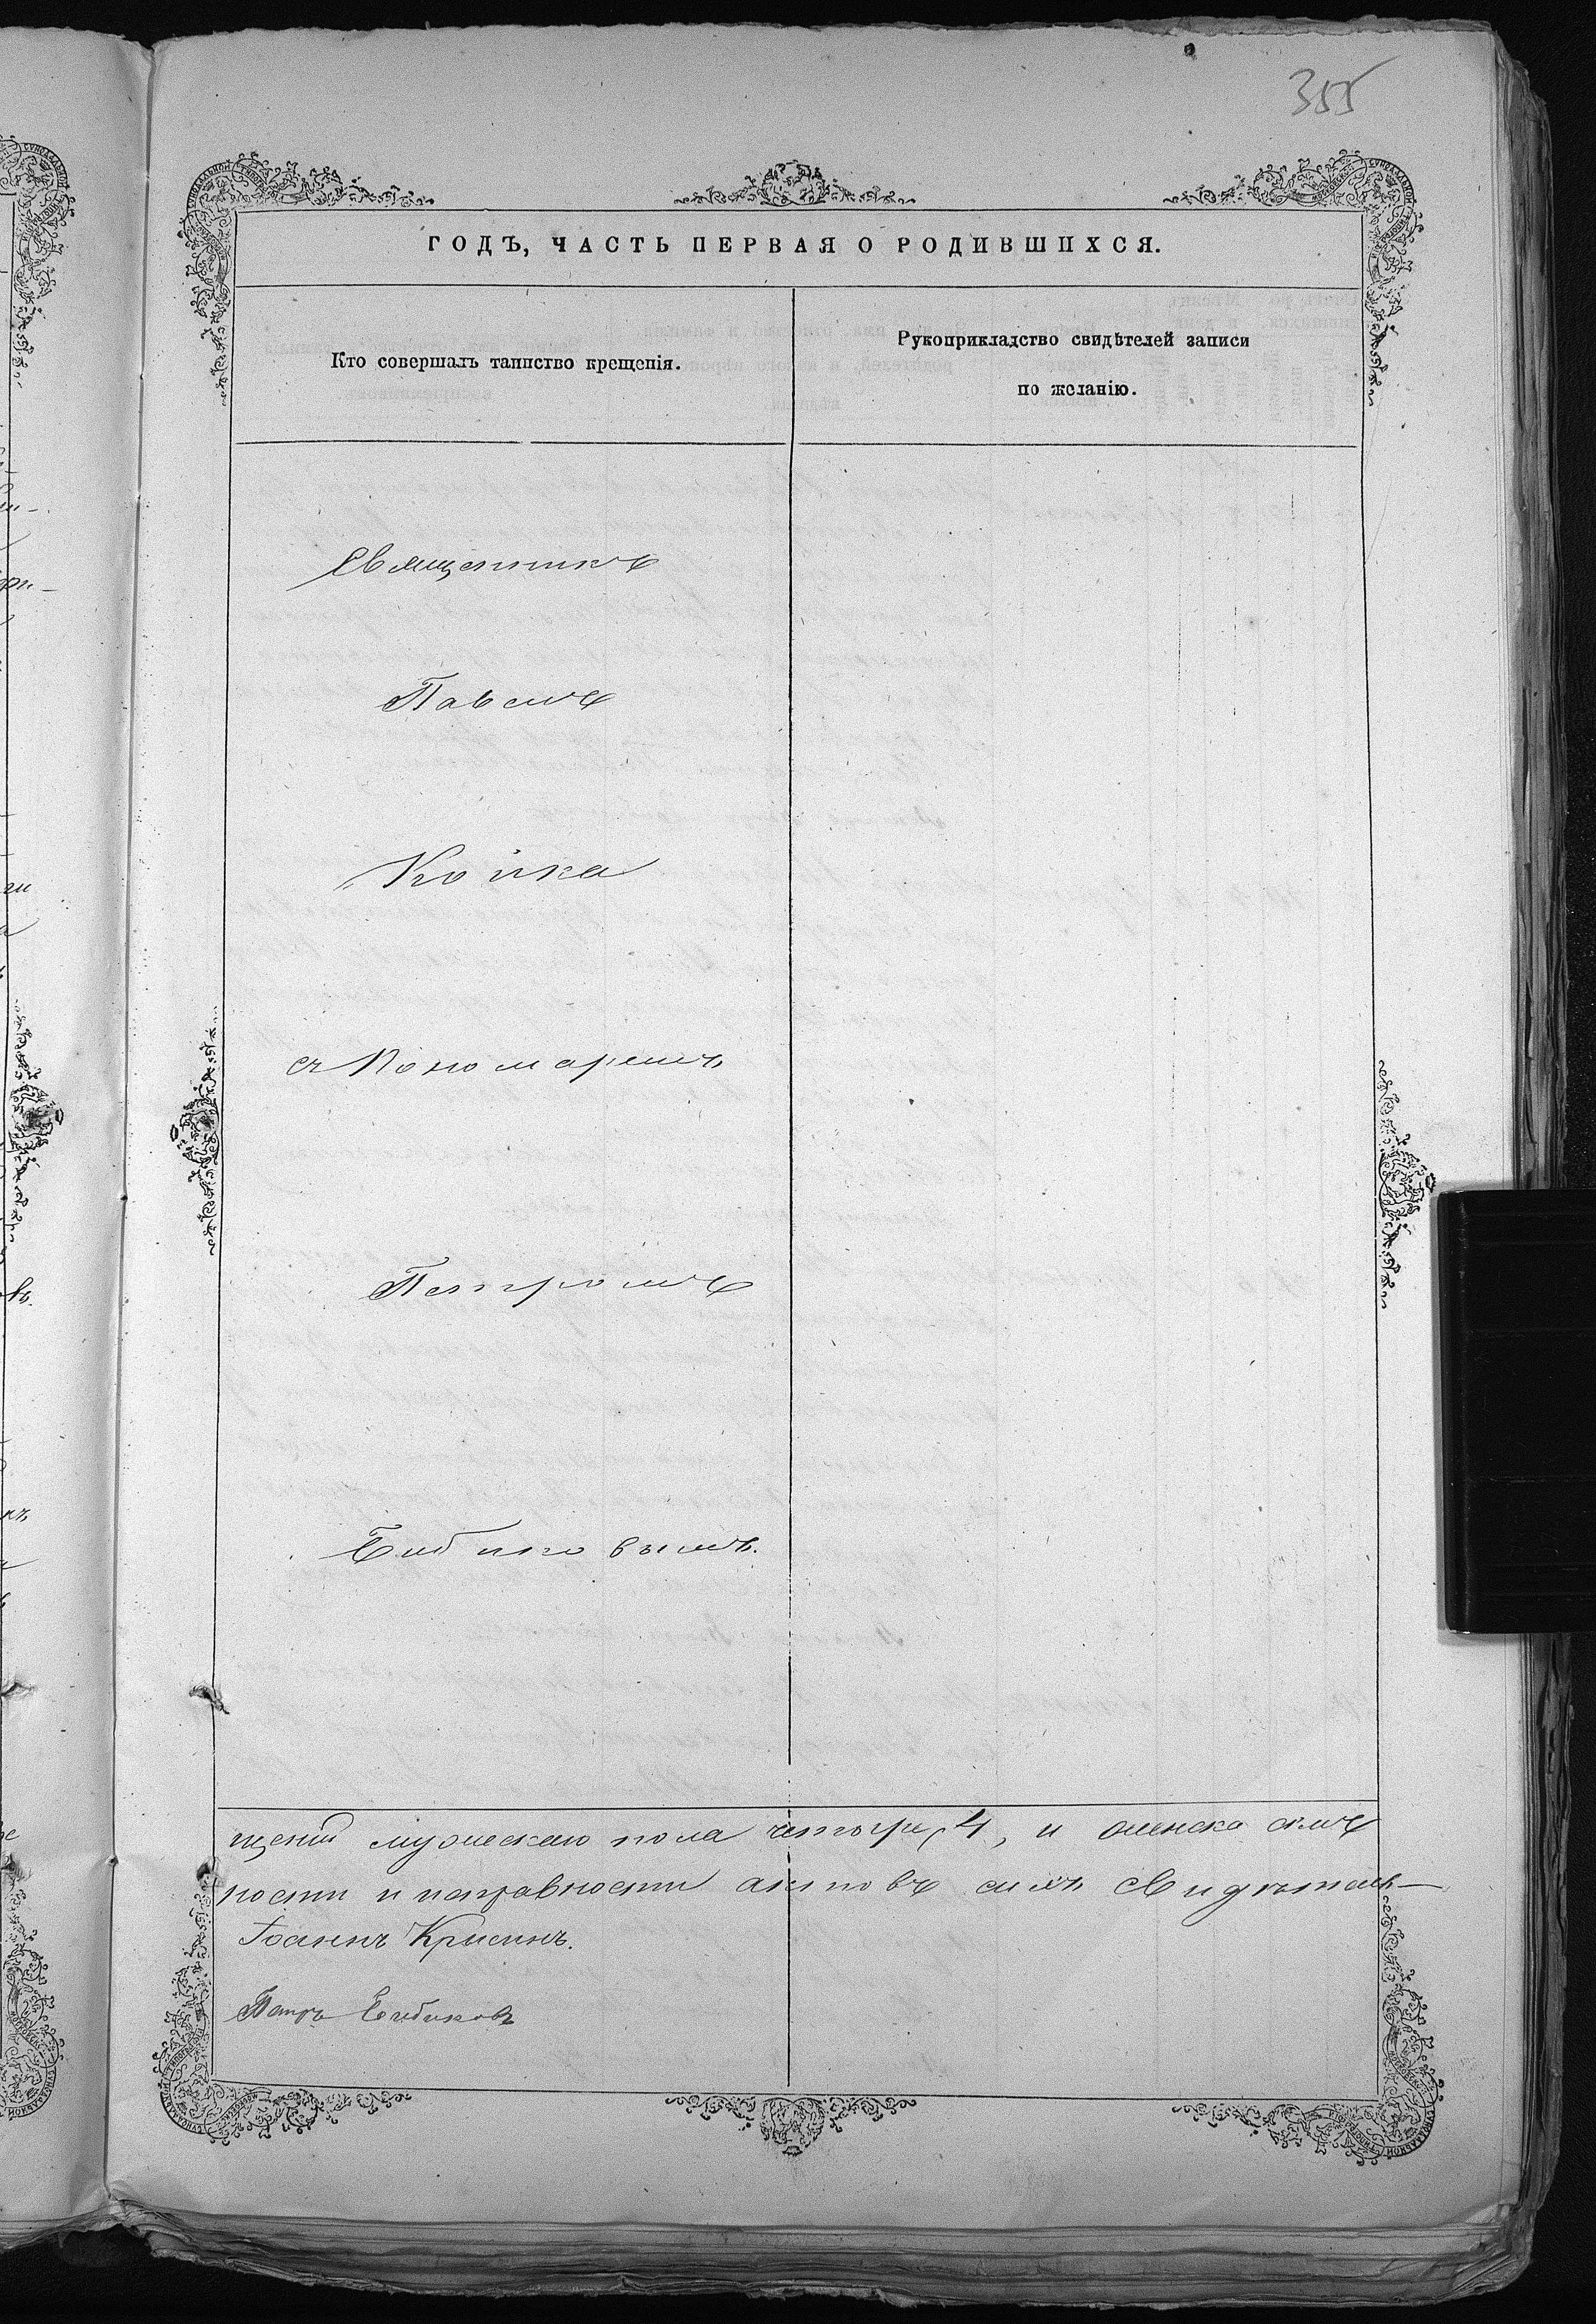 355
ГОДЪ, ЧАСТЬ ПЕРВАЯ О РОДИВШИХСЯ.
Кто совершалъ таинство крещенія.
Рукоприкладство свидѣтелей записи
по желанію.
Священникъ
Павелъ
Койка
съ Пономаремъ
Петромъ
Бибиковымъ.
щеній мужескаго пола четыре, 4, и женска
ности и исправности актовъ сихъ свидѣтель-
Іоаннъ Крисинъ.
Петръ Бибиковъ